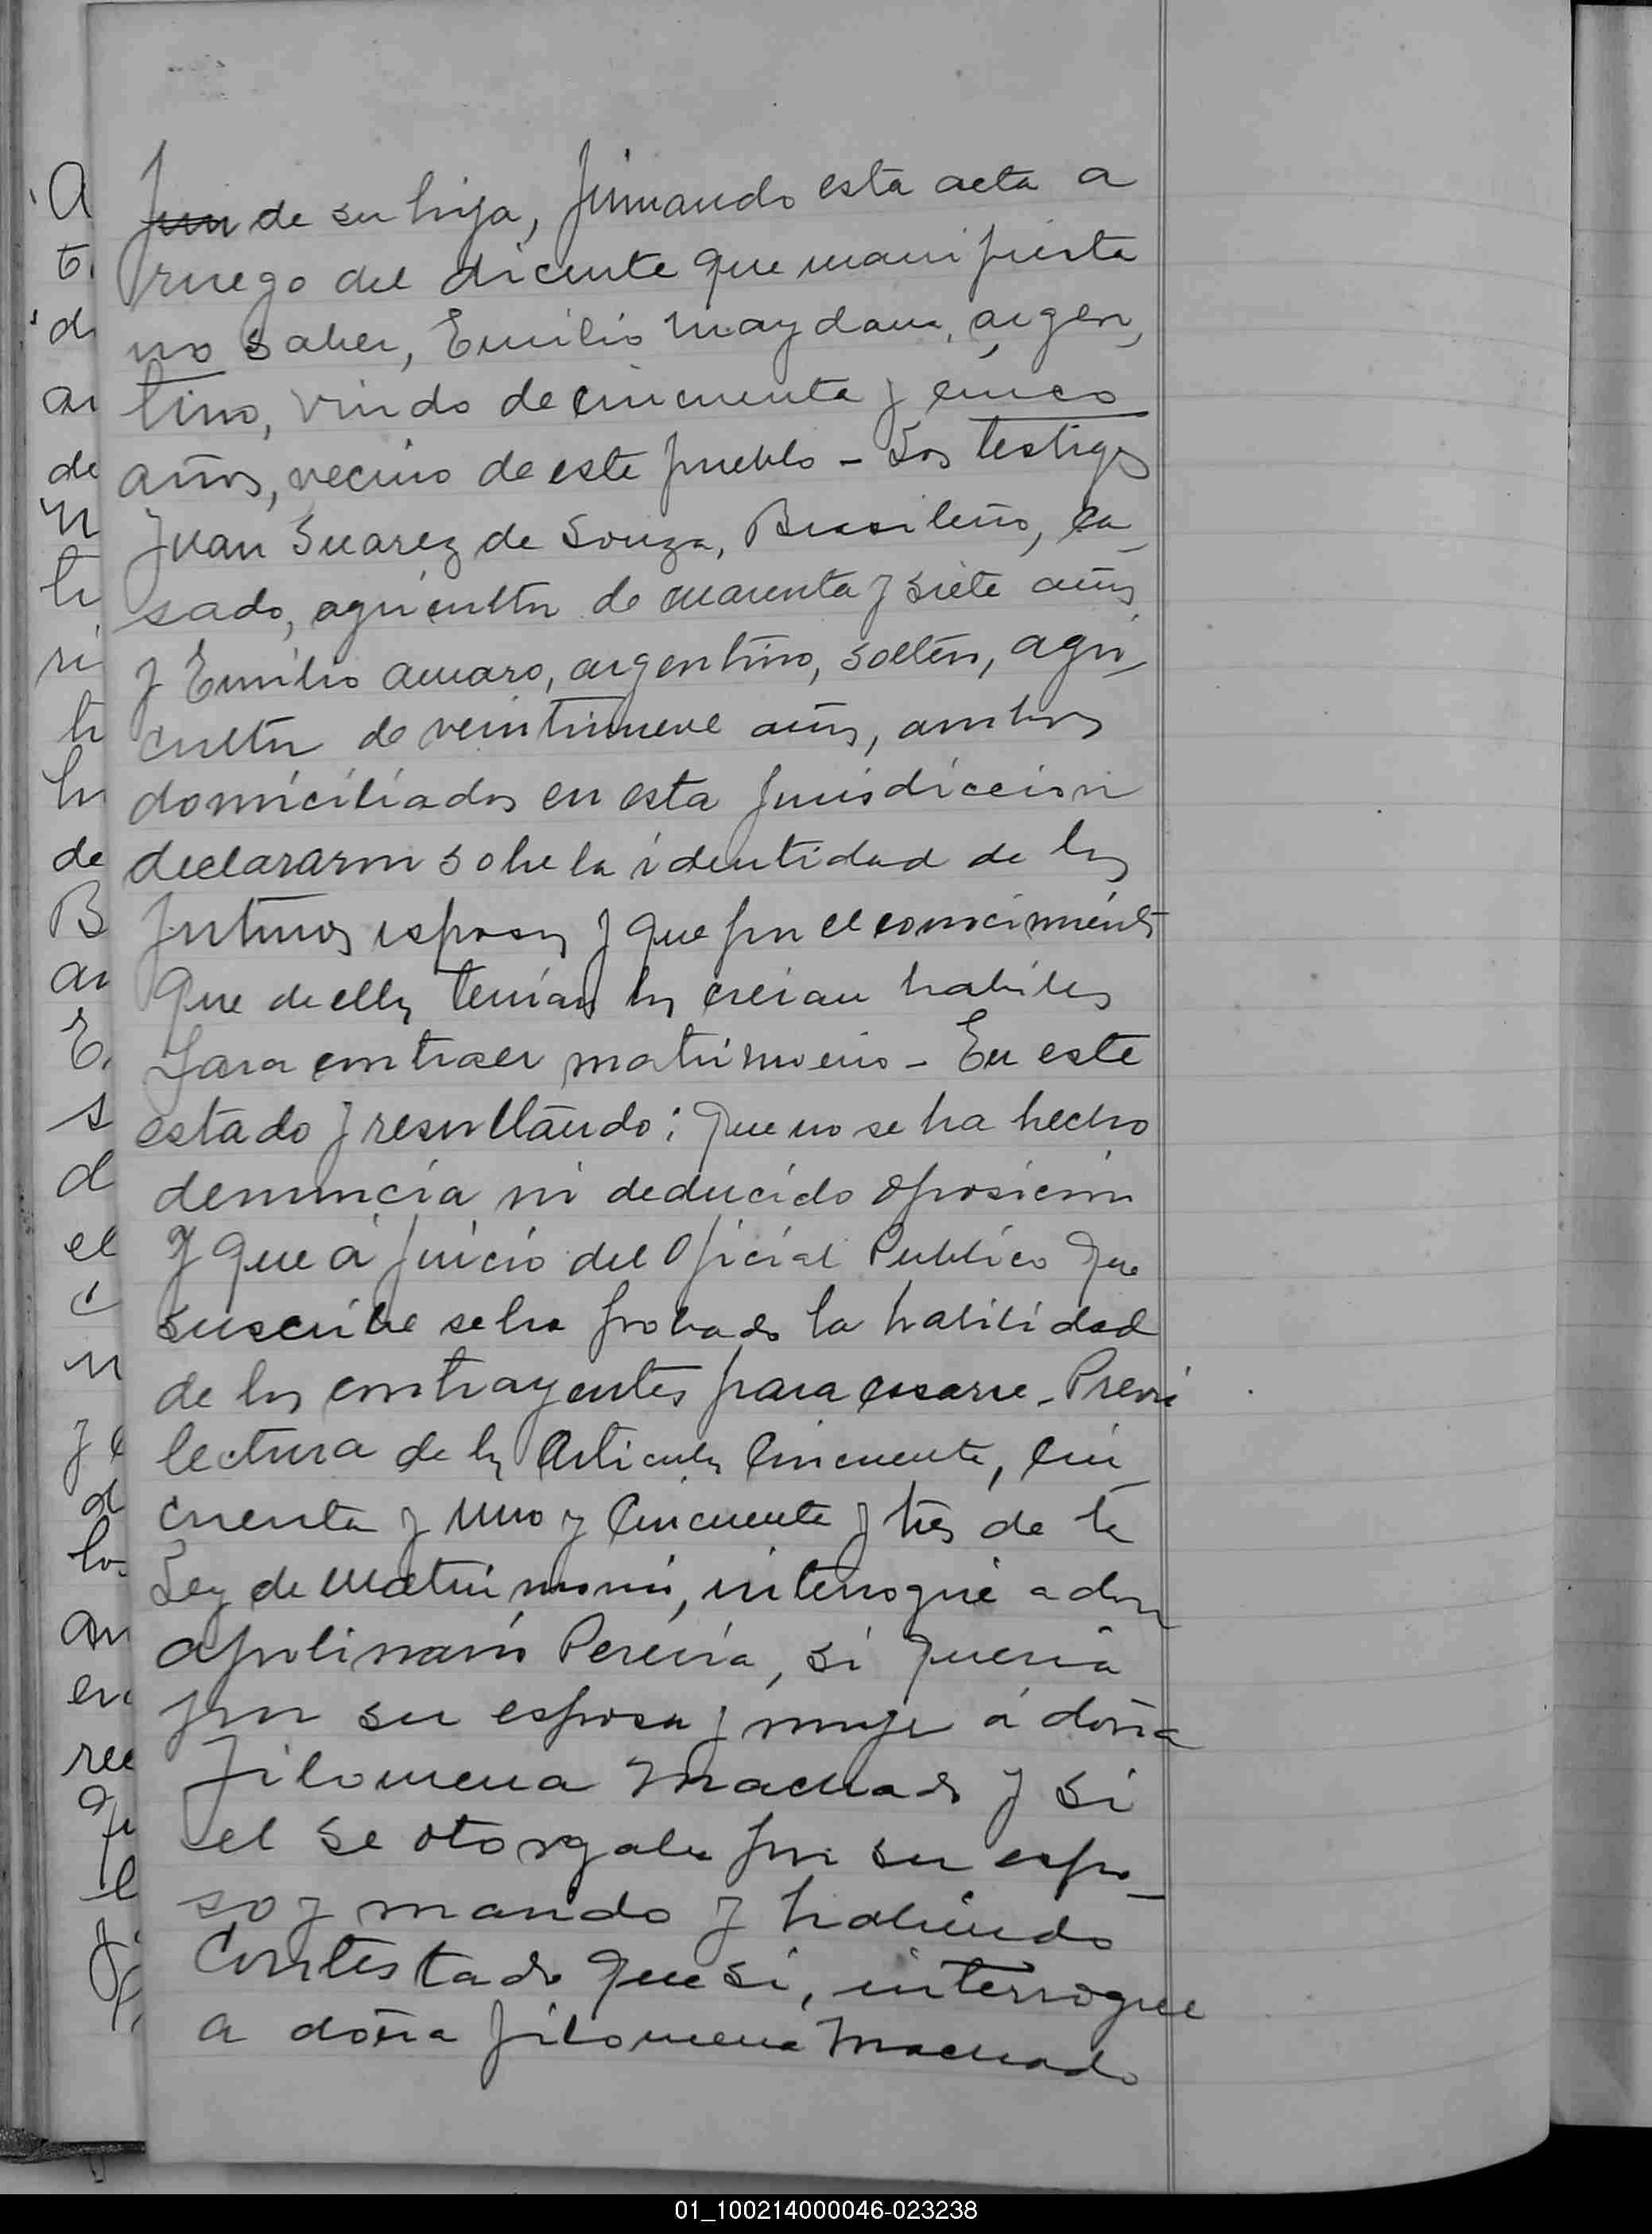 de su hija, firmando esta acta a
ruego del dicente que manifiesta
no saber, Emilio Maydana, argen,
tino, viudo de cincuenta y cinco
años, vecino de este pueblo - Los testigos
Juan Suarez de Souza, Brasileño, ca_
sado, agricultor de cuarenta y siete años
y Emilio Amaro, argentino, soltero, agri_
cultor de veintinueve años, ambos
domiciliados en esta jurisdiccion
declararon sobre la identidad de los
futuros esposos y que por el conocimiento
que de ellos tenian los creian habiles
para contraer matrimonio - En este
estado y resultando: que no se ha hecho
denuncia ni deducido oposicion
y que á juicio del Oficial Publico que
suscribe se ha probado la habilidad
de los contrayentes para casarse - Previa
lectura de los Articulos Cincuenta, Cin_
cuenta y uno y Cincuenta y tres de la
Ley de Matrimonio, interrogué a don
Apolinario Pereira, si queria
por su esposa y mujer á doña
Filomena Machado y si
el se otorgaba por su espo_
so y marido y habiendo
Contestado que si, interrogue
a doña Filomena Machado
A
t
d
ar
de
ti
ri
ti
de
B
ar
E
s
d
el
y
d
los
en
el
01_100214000046-023238